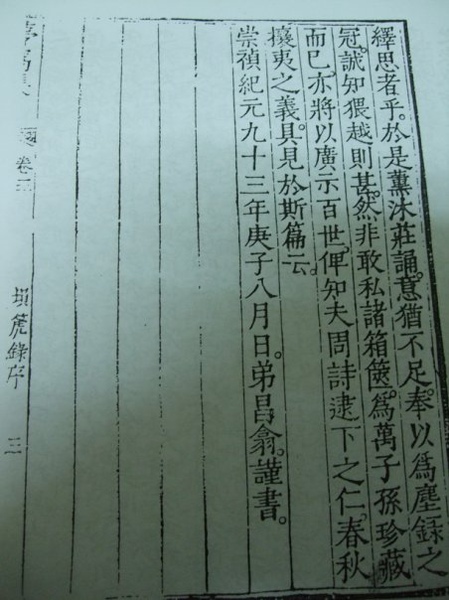 繹思者乎。於是薰沐莊誦。意猶不足。奉以爲塵錄之
冠。誠知猥越則甚。然非敢私諸箱篋。爲萬子孫珍藏
而已。亦將以廣示百世。俾知夫周詩逮下之仁。春秋
攘夷之義。具見於斯篇云。
崇禎紀元九十三年庚子八月日。弟昌翕。謹書。
卷三
塤箎錄序
三